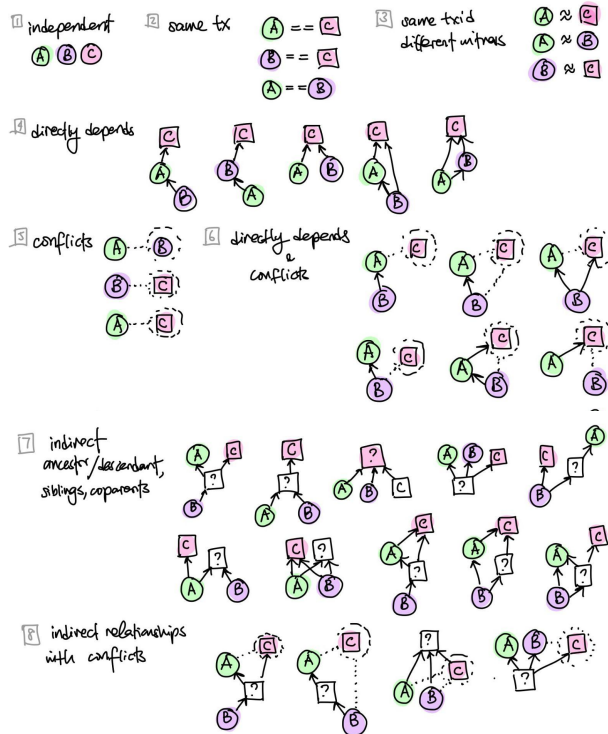 1 independent
A B C
2 same tx
A == C
B == C
A == B
3 same txid
different witness
A ≈ C
A ≈ B
B ≈ C
4 directly depends
C A B
C B A
C A B
C A B
C B A
5 conflicts
A B
B C
A C
6 directly depends
&
conflicts
A C B
A C B
A C B
A C B
C A B
C A B
7 indirect
ancestor/descendant,
siblings, coparents
A C ? B
C ? A B
? A B C
A B C ?
A C ? B
C ? A B
C ? A B
C A ? B
A C ? B
C A ? B
8 indirect relationships
with conflicts
A C ? B
A C ? B
? C A B
A B C ?